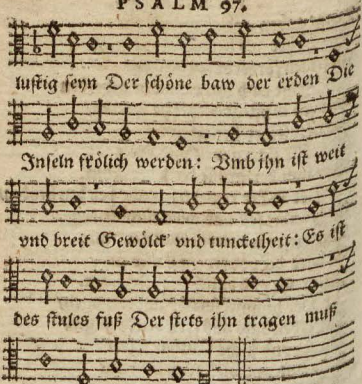 PSALM 97.
luſtig ſeyn Der ſchöne baw der erden Die
Inſeln frölich werden: Vmb jhn iſt weit
vnd breit Gewölck vnd tunckelheit: Es iſt
des ſtules fuß Der ſtets jhn tragen muß